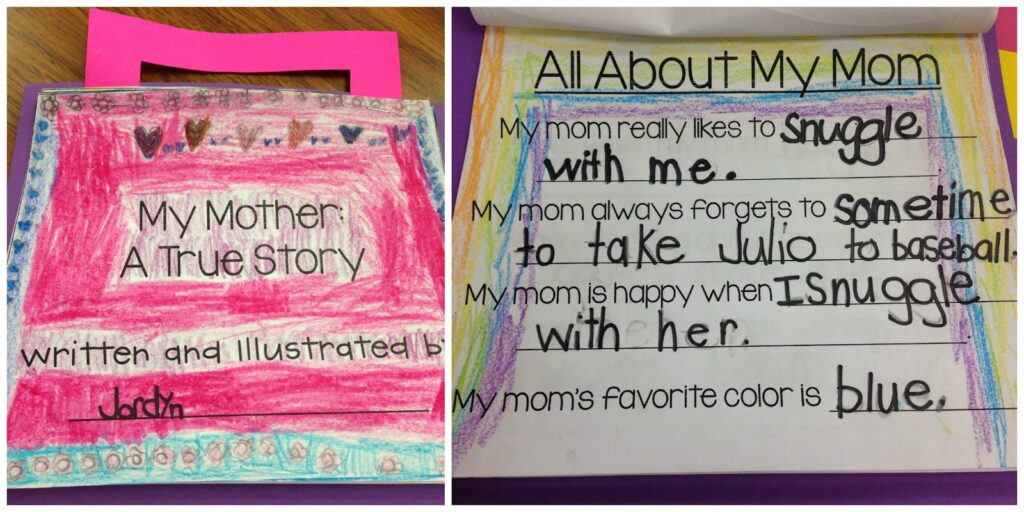 My Mother:
A True Story
written and Illustrated b
Jordyn
All About My Mom
My mom really likes to snuggle
with me.
My mom always forgets to sometime
to take Julio to baseball.
My mom is happy when I snuggle
with her.
My mom's favorite color is blue.